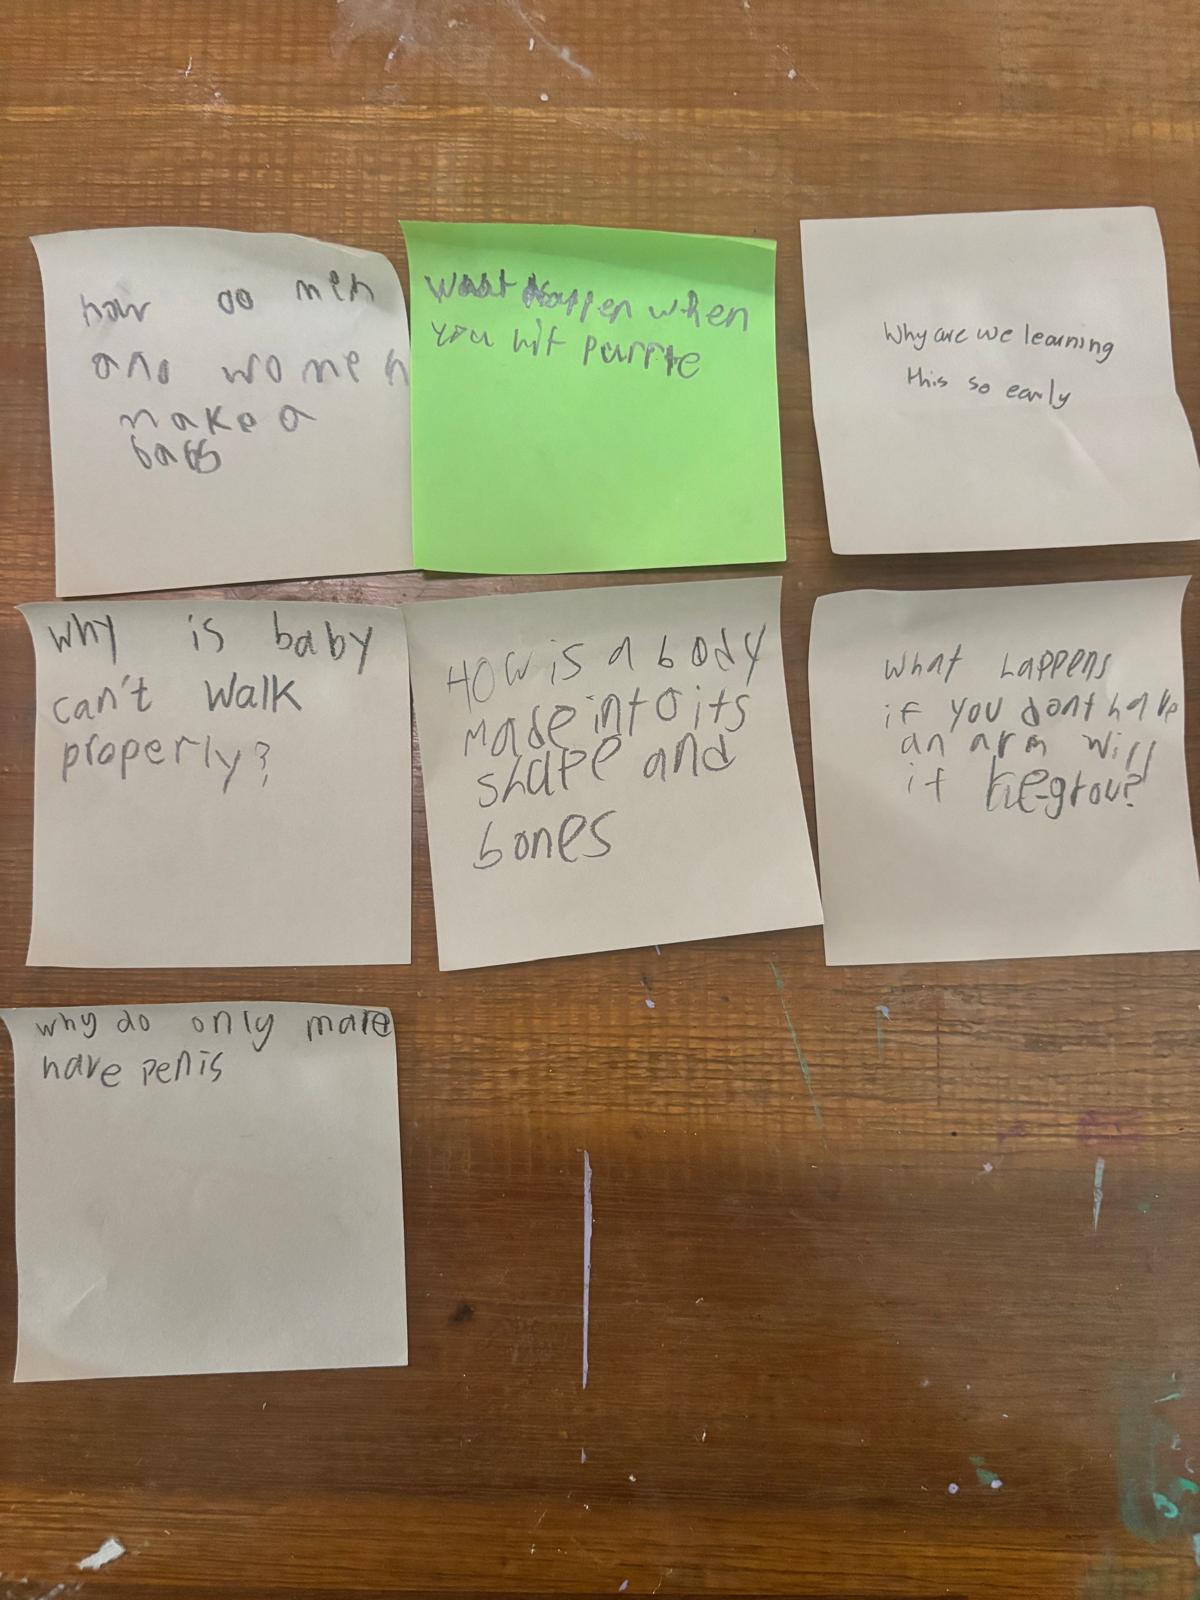 how do men
and women
make a
baby
What happen when
you hit purrte
Why are we learning
this so early
Why is baby
can't walk
properly?
How is a body
made into its
shape and
bones
What happens
if you dont have
an arm will
it Re-grow?
why do only male
have penis